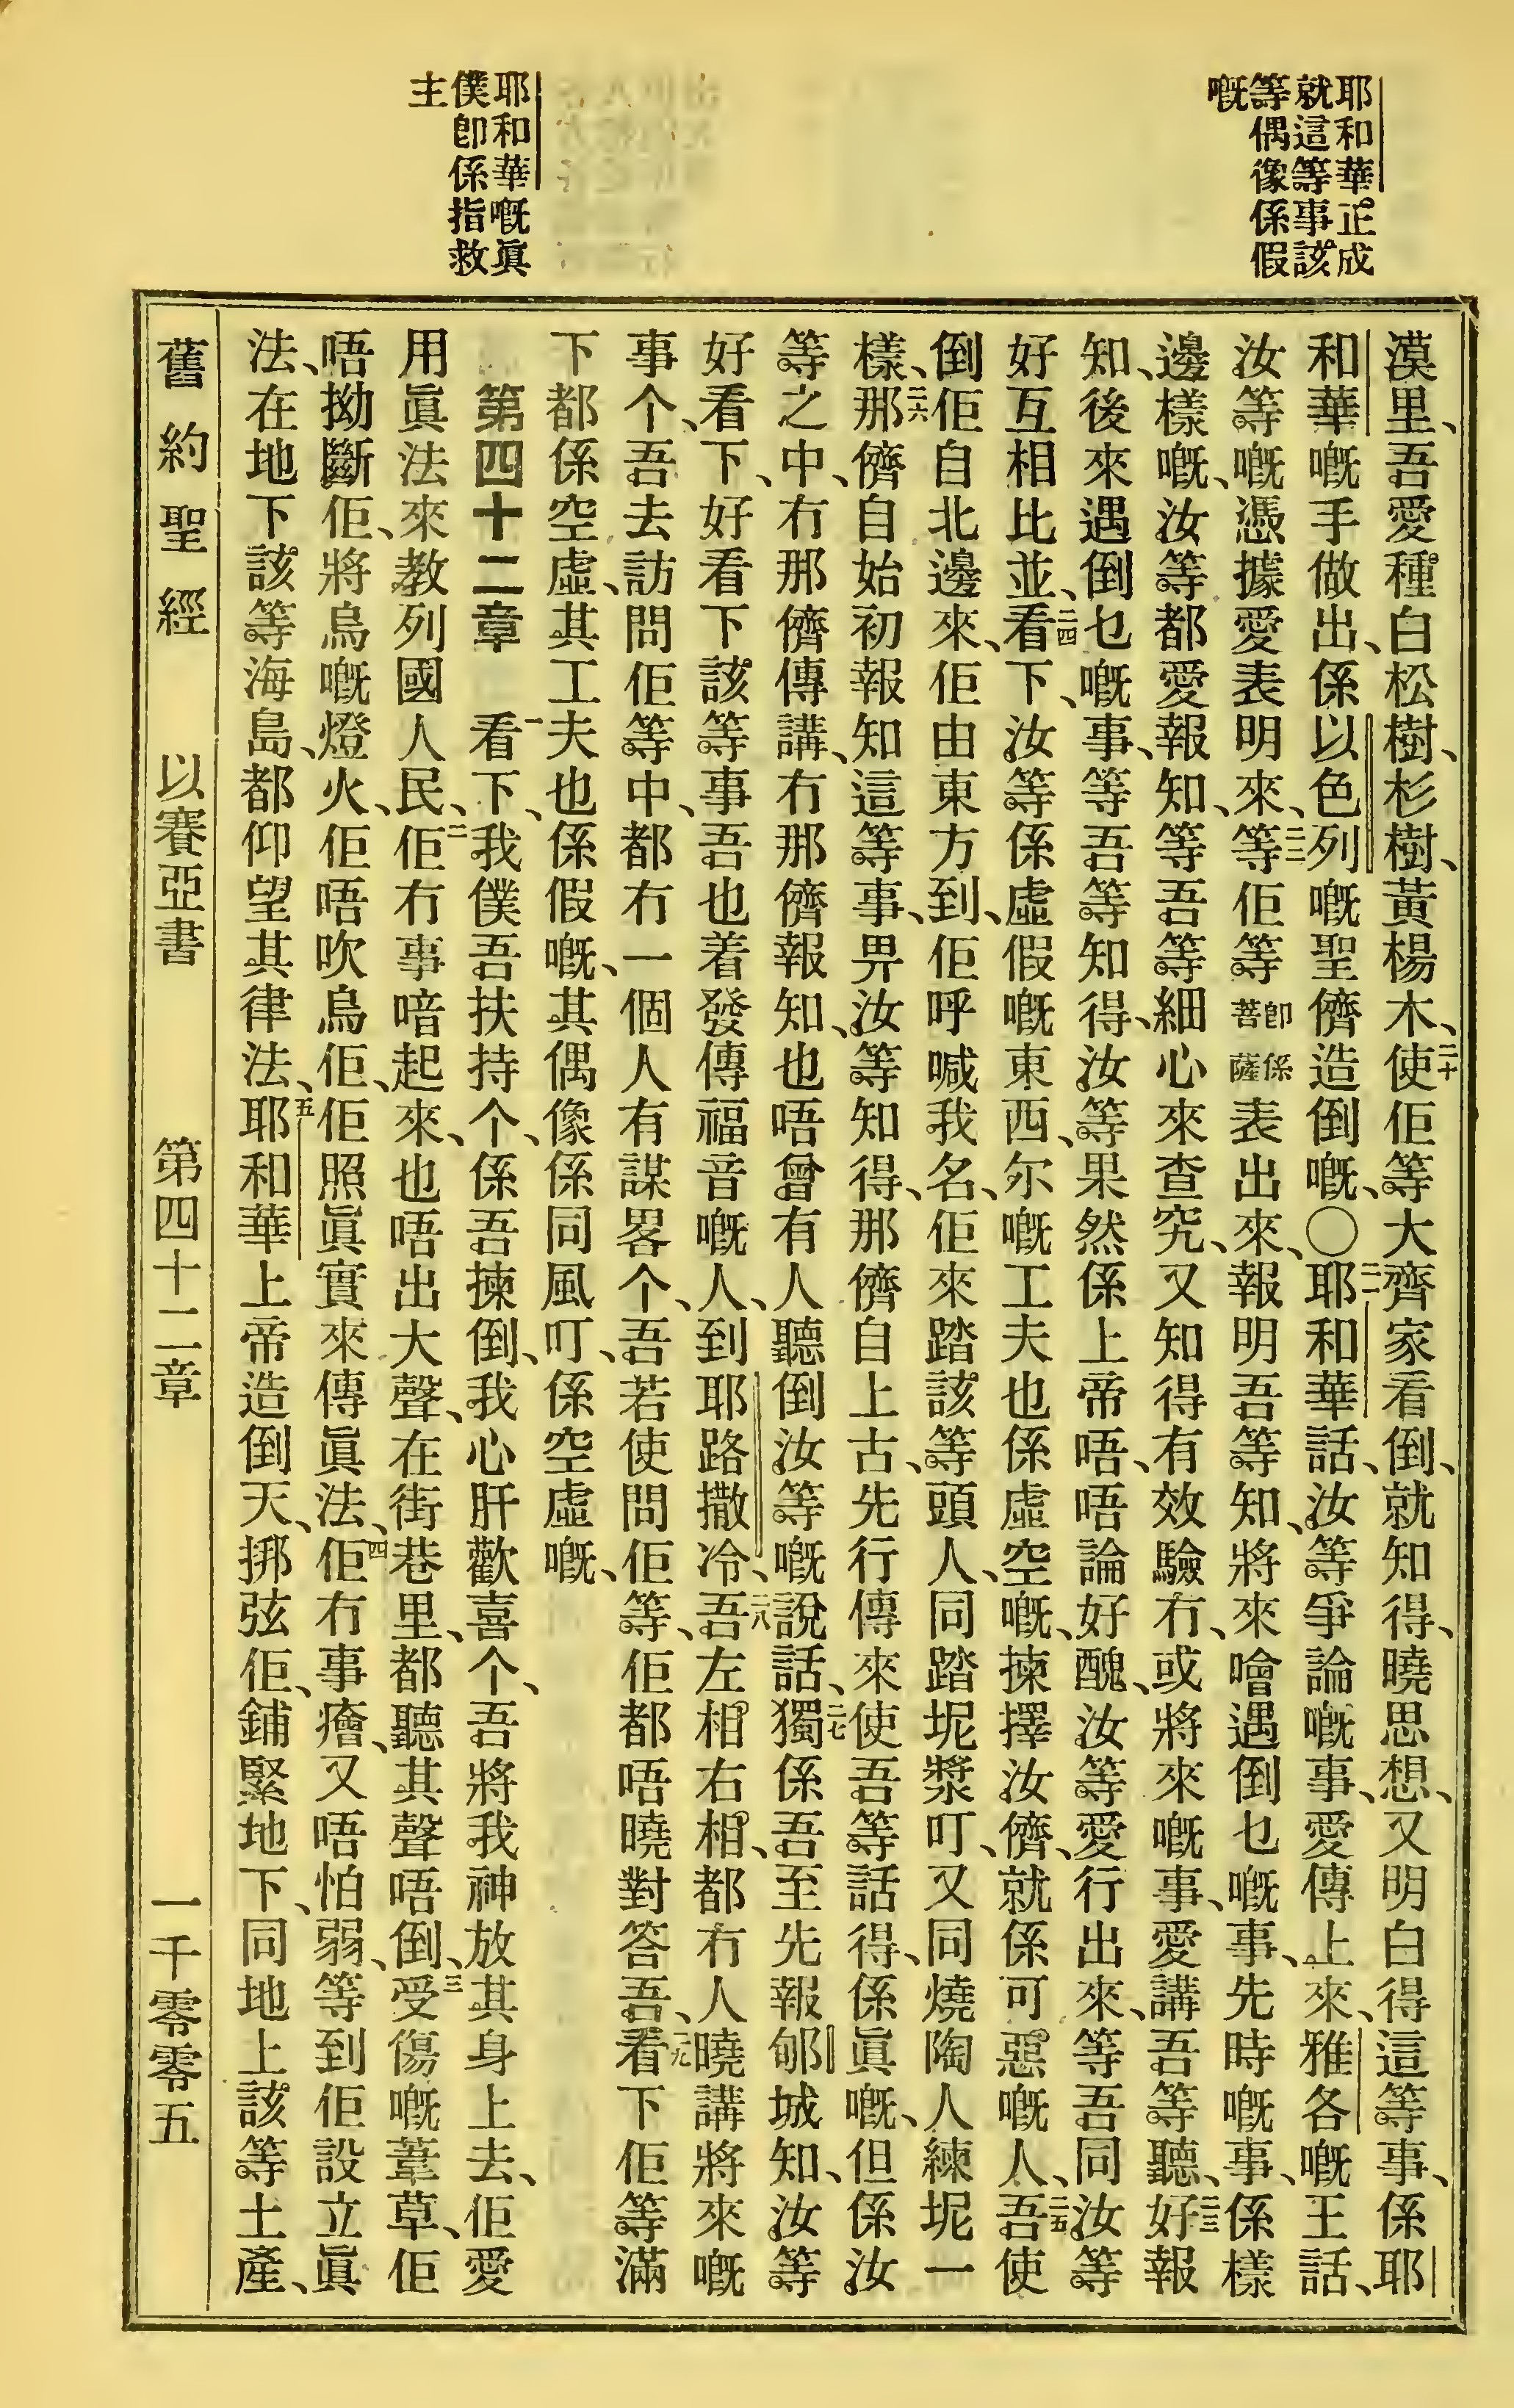 耶和華正成
就這等事該
等偶像係假
嘅
耶和華嘅眞
僕卽係指救
主
漠里、吾愛種白松樹、杉樹、黃楊木、二十使佢等大齊家看倒、就知得、曉思想、又明白得這等事、係耶
和華嘅手做出、係以色列嘅聖儕造倒嘅、〇二一耶和華話、汝等爭論嘅事、愛傳上來、雅各嘅王話、
汝等嘅憑據愛表明來、二二等佢等卽係菩薩表出來、報明吾等知、將來噲遇倒乜嘅事、先時嘅事、係樣
邊樣嘅、汝等都愛報知、等吾等細心來查究、又知得有效驗冇、或將來嘅事、愛講吾等聽、二三好報
知、後來遇倒乜嘅事、等吾等知得、汝等果然係上帝唔、唔論好醜、汝等愛行出來、等吾同汝等
好互相比並、二四看下、汝等係虛假嘅東西、尔嘅工夫也係虛空嘅、揀擇汝儕、就係可惡嘅人、二五吾使
倒佢自北邊來、佢由東方到、佢呼喊我名、佢來踏該等頭人、同踏坭漿叮、又同燒陶人練坭一
樣、二六那儕自始初報知這等事、畀汝等知得、那儕自上古、先行傳來使吾等話得、係眞嘅、但係汝
等之中、冇那儕傳講、冇那儕報知、也唔曾有人聽倒汝等嘅說話、二七獨係吾至先報郇城知、汝等
好看下、好看下該等事吾也着發傳福音嘅人、到耶路撒冷、二八吾左相右相、都冇人曉講將來嘅
事个、吾去訪問佢等中、都冇一個人有謀畧个、吾若使問佢等、佢都唔曉對答吾、二九看下佢等滿
下都係空虛、其工夫也係假嘅、其偶像係同風叮、係空虛嘅、
第四十二章　一看下、我僕吾扶持个、係吾揀倒、我心肝歡喜个、吾將我神放其身上去、佢愛
用眞法來教列國人民、二佢冇事喑起來、也唔出大聲、在街巷里、都聽其聲唔倒、三受傷嘅葦草、佢
唔拗斷佢、將烏嘅燈火、佢唔吹烏佢、佢照眞實來傳眞法、四佢冇事癐、又唔怕弱、等到佢設立眞
法、在地下該等海島、都仰望其律法、五耶和華上帝造倒天、挷弦佢、鋪緊地下、同地上該等土產、
舊約聖經　以賽亞書　第四十二章　一千零零五